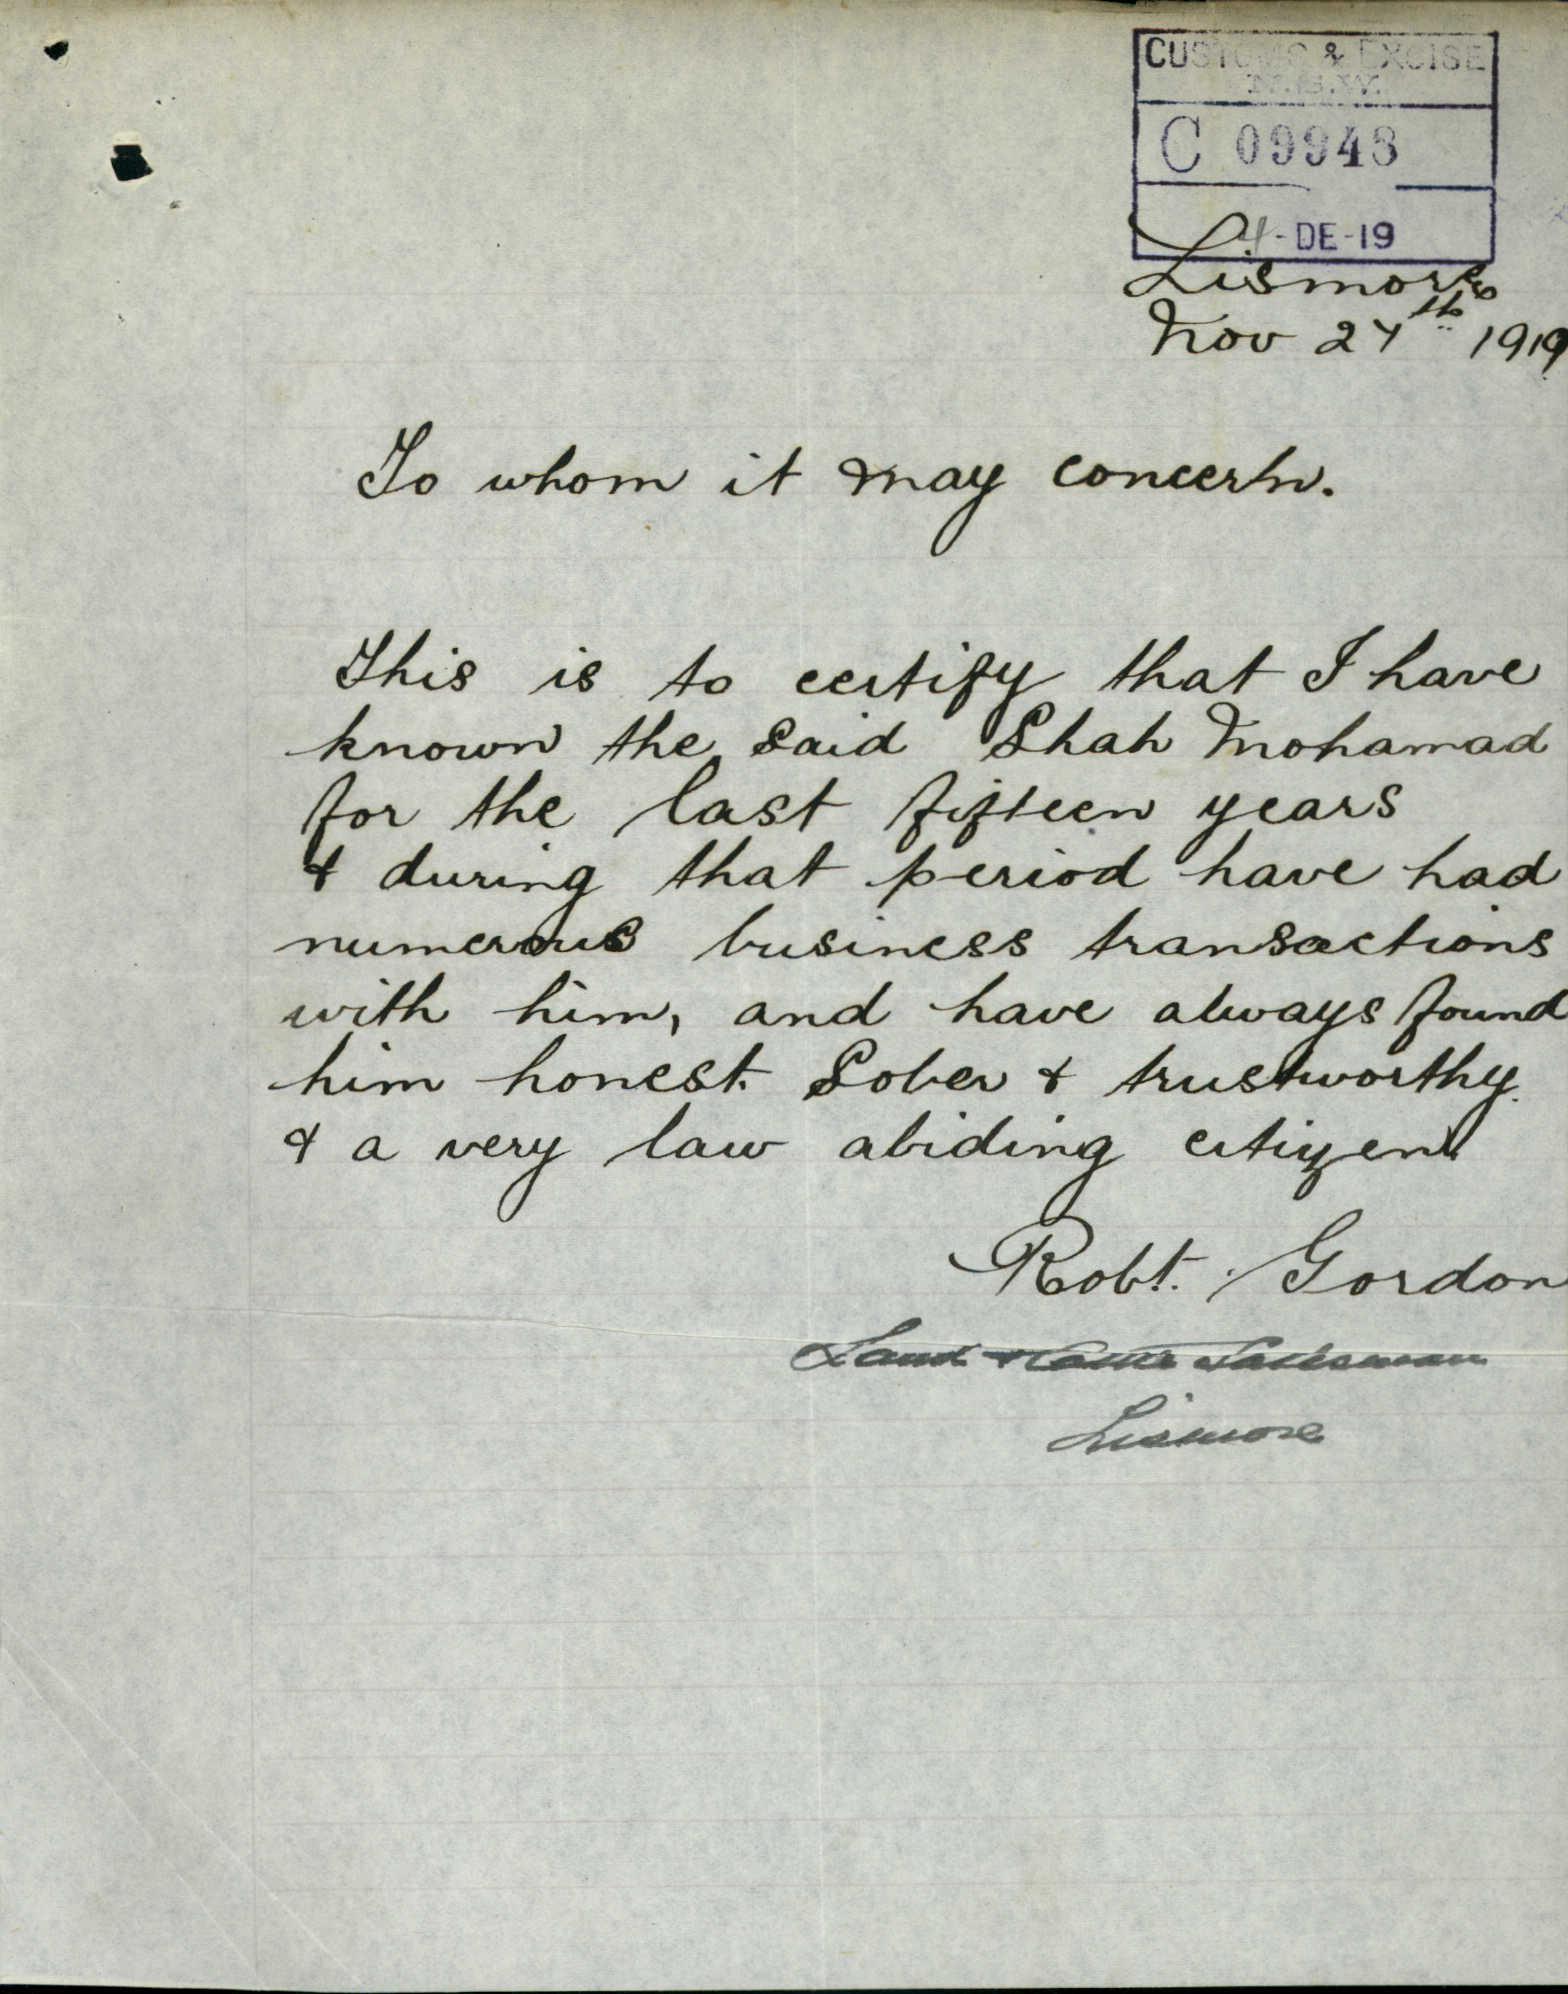 CUSTOMS & EXCISE
N.S.W.
C 09948
4-DE-19
Lismore
Nov 24th 1919
To whom it may concern.
This is to certify that I have
known the said Shah Mohamad
for the last fifteen years
& during that period have had
numerous business transactions
with him, and have always found
him honest. Sober & trustworthy.
& a very law abiding citizen
Robt. Gordon
Land & Cattle Salesman
Lismore